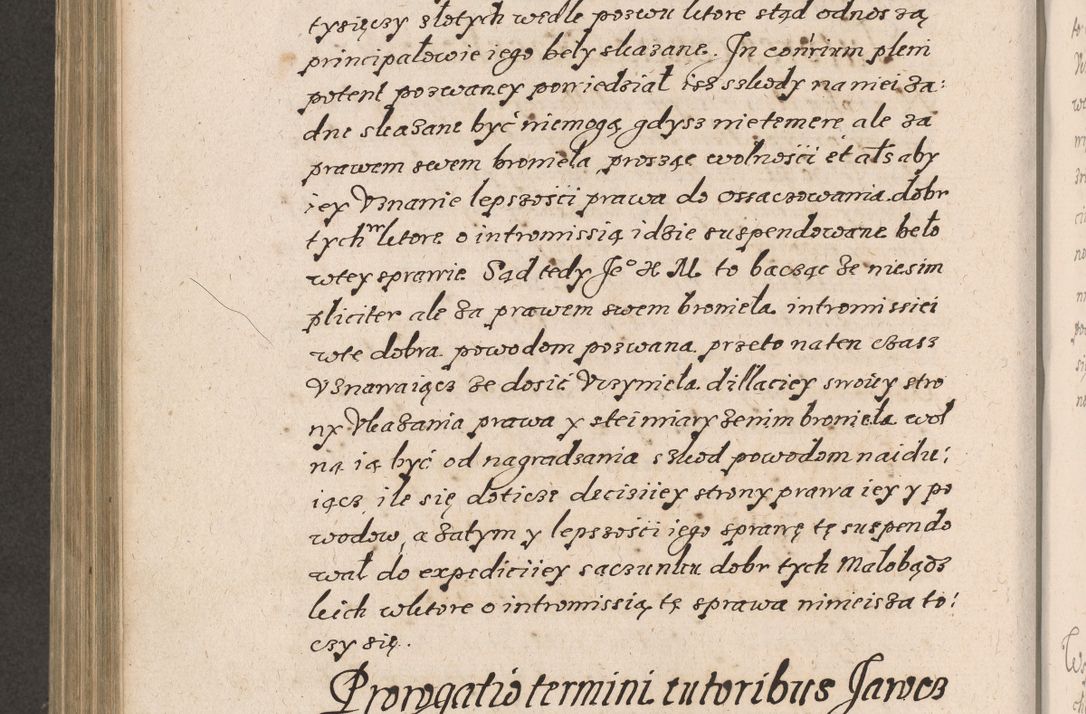 tysięczy złotych wedle pozwu ktore stąd odnoszą
principałowie iego beły skazane. In con͞rium pleni
potent pozwaney powiedział isz szkody na niei za:
dne skazane być niemogą gdysz nie temere ale za
prawem swem broniela, prosząc wolności et ał͞s aby
iey Vznanie lepszości prawa do ossaczowania dobr
tych ktore o intromissią idzie suspendowane beło
wtey sprawie. Sąd tedy Je° K M. to bacząc że niesim
pliciter ale za prawem swem broniela intromissiei
wte dobra powodom pozwana przeto na ten czasz
Vznawaiącz że dosić Vczyniela dillaciey swoiey stro
ny Vkazania prawa y stei miary ze nim broniela wol
ną ią być od nagradzania szkod powodom naidu:
iącz, ile się doticze deciziiey strony prawa iey y po
wodow, a zatym y lepszości iego sprawę tę suspendo
wał do expediciiey saczunku dobr tych Małobądz
kich wktore o intromissią tę sprawa ninieisza to:
czy się.
Prorogatio termini tutoribus Jarocz